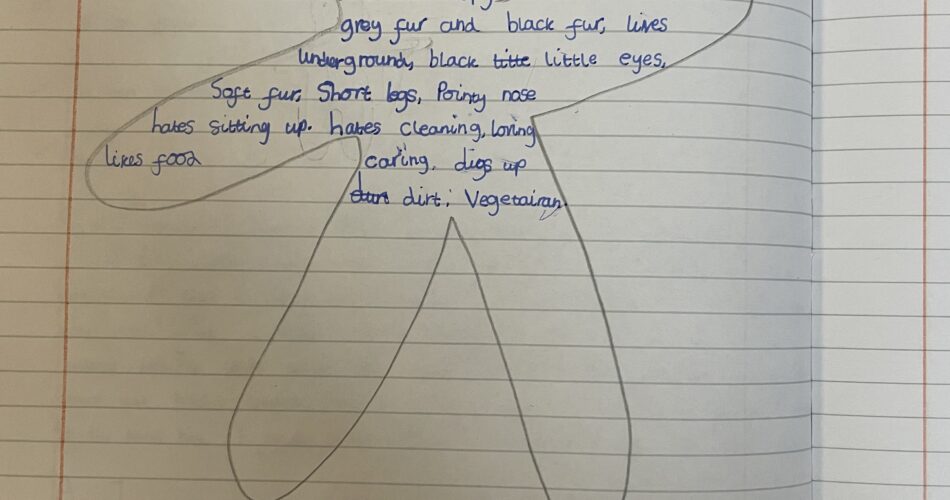 grey fur and black fur, lives
underground, black little eyes,
Soft fur, Short legs, Pointy nose
hates sitting up. hates cleaning, loving
likes food caring, digs up
dirt; Vegetairan.